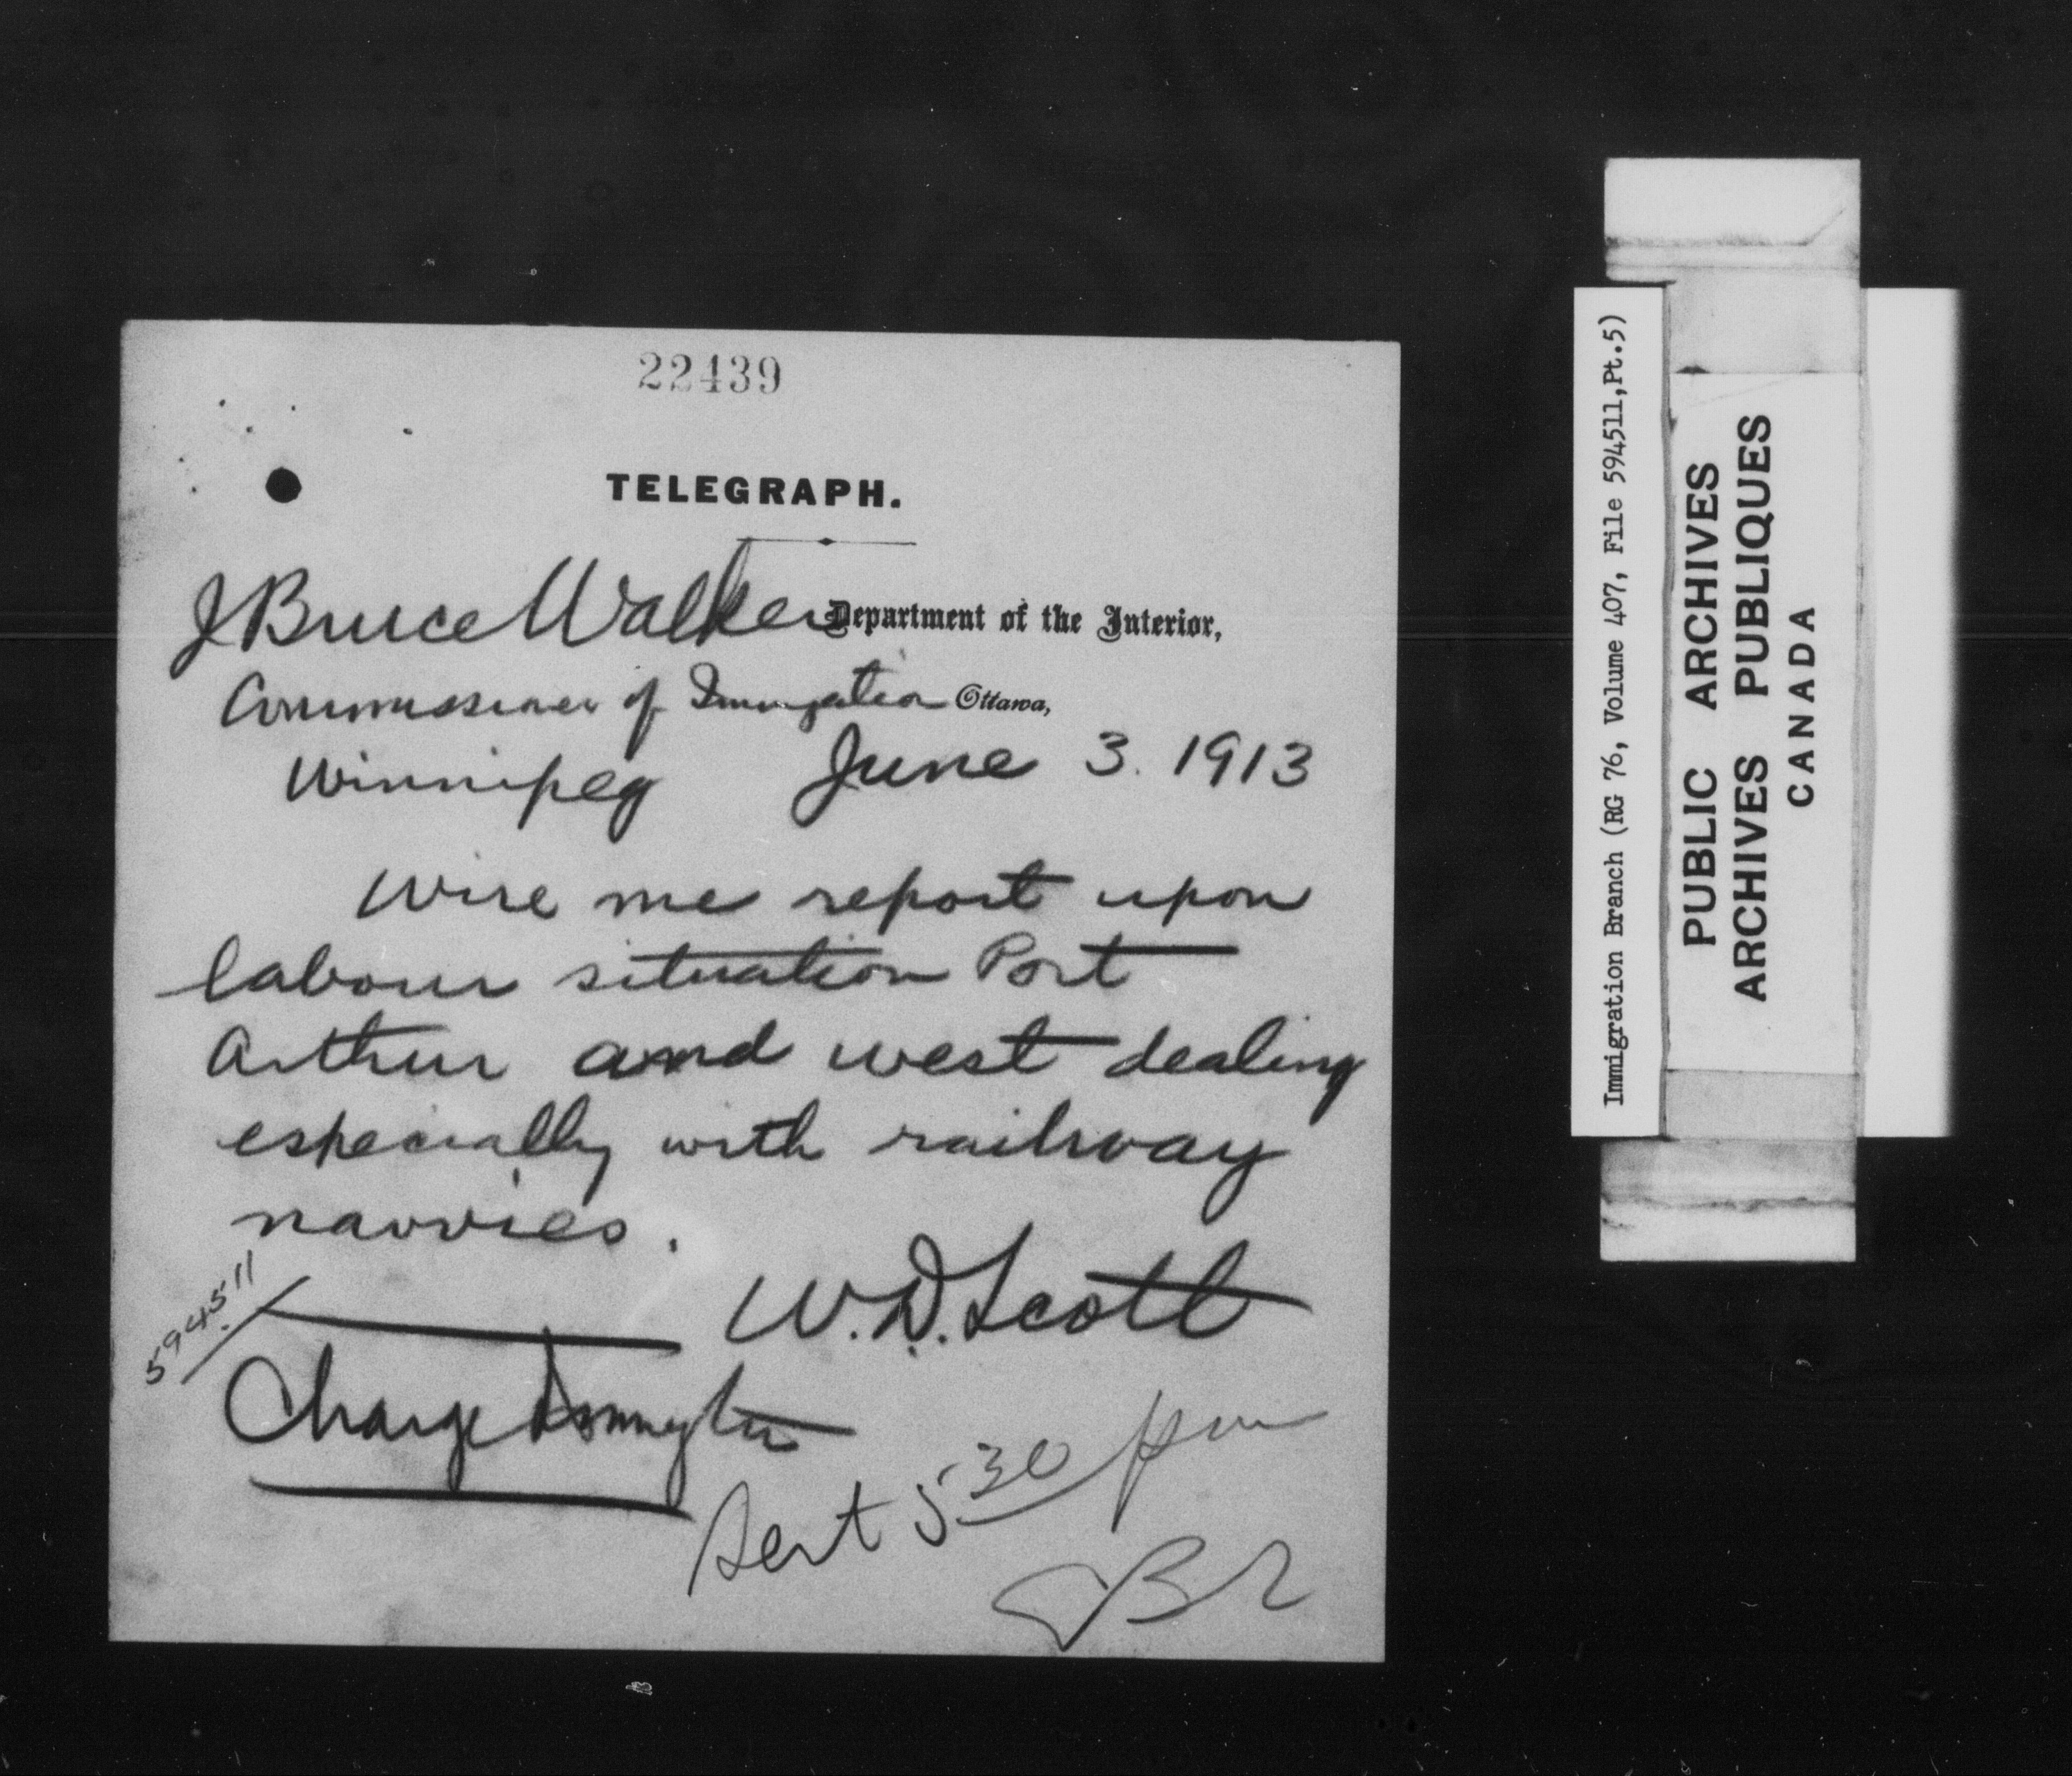 22439
TELEGRAPH.
J Bruce Walker Department of the Interior,
Commissioner of Immigration Ottawa,
Winnipeg June 3. 1913
Wire me report upon
labour situation Port
Arthur and west dealing
especially with railway
navvies.
W.D. Scott
594511
Charge Immigtn
Sent 5 30 pm
Immigration Branch (RG 76, Volume 407, File 594511,Pt.5)
PUBLIC ARCHIVES
ARCHIVES PUBLIQUES
CANADA